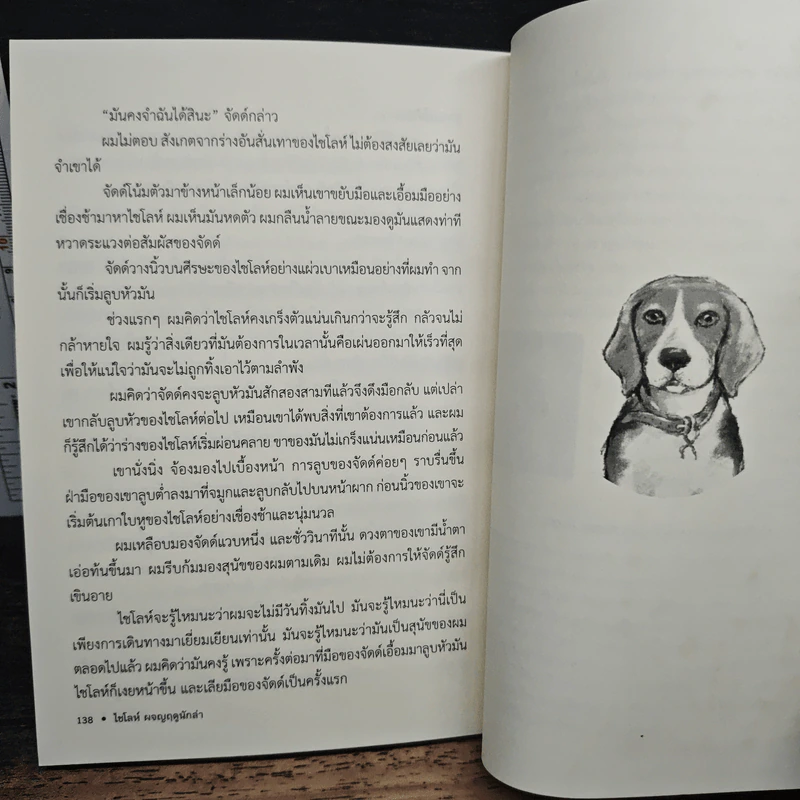 “มันคงจำฉันได้สินะ” จัดด์กล่าว
ผมไม่ตอบ สังเกตจากร่างอันสั่นเทาของไชโลห์ ไม่ต้องสงสัยเลยว่ามัน
จำเขาได้
จัดด์โน้มตัวมาข้างหน้าเล็กน้อย ผมเห็นเขาขยับมือและเอื้อมมืออย่าง
เชื่องช้ามาหาไชโลห์ ผมเห็นมันหดตัว ผมกลืนน้ำลายขณะมองดูมันแสดงท่าที
หวาดระแวงต่อสัมผัสของจัดด์
จัดด์วางนิ้วบนศีรษะของไชโลห์อย่างแผ่วเบาเหมือนอย่างที่ผมทำ จาก
นั้นก็เริ่มลูบหัวมัน
ช่วงแรกๆ ผมคิดว่าไชโลห์คงเกร็งตัวแน่นเกินกว่าจะรู้สึก กลัวจนไม่
กล้าหายใจ ผมรู้ว่าสิ่งเดียวที่มันต้องการในเวลานั้นคือเผ่นออกมาให้เร็วที่สุด
เพื่อให้แน่ใจว่ามันจะไม่ถูกทิ้งเอาไว้ตามลำพัง
ผมคิดว่าจัดด์คงจะลูบหัวมันสักสองสามทีแล้วจึงดึงมือกลับ แต่เปล่า
เขากลับลูบหัวของไชโลห์ต่อไป เหมือนเขาได้พบสิ่งที่เขาต้องการแล้ว และผม
ก็รู้สึกได้ว่าร่างของไชโลห์เริ่มผ่อนคลาย ขาของมันไม่เกร็งแน่นเหมือนก่อนแล้ว
เขานั่งนิ่ง จ้องมองไปเบื้องหน้า การลูบของจัดด์ค่อยๆ ราบรื่นขึ้น
ฝ่ามือของเขาลูบต่ำลงมาที่จมูกและลูบกลับไปบนหน้าผาก ก่อนนิ้วของเขาจะ
เริ่มต้นเกาใบหูของไชโลห์อย่างเชื่องช้าและนุ่มนวล
ผมเหลือบมองจัดด์แวบหนึ่ง และชั่ววินาทีนั้น ดวงตาของเขามีน้ำตา
เอ่อท้นขึ้นมา ผมรีบก้มมองสุนัขของผมตามเดิม ผมไม่ต้องการให้จัดด์รู้สึก
เขินอาย
ไชโลห์จะรู้ไหมนะว่าผมจะไม่มีวันทิ้งมันไป มันจะรู้ไหมนะว่านี่เป็น
เพียงการเดินทางมาเยี่ยมเยียนเท่านั้น มันจะรู้ไหมนะว่ามันเป็นสุนัขของผม
ตลอดไปแล้ว ผมคิดว่ามันคงรู้ เพราะครั้งต่อมาที่มือของจัดด์เอื้อมมาลูบหัวมัน
ไชโลห์ก็เงยหน้าขึ้น และเลียมือของจัดด์เป็นครั้งแรก
138 • ไชโลห์ ผจญฤดูนักล่า